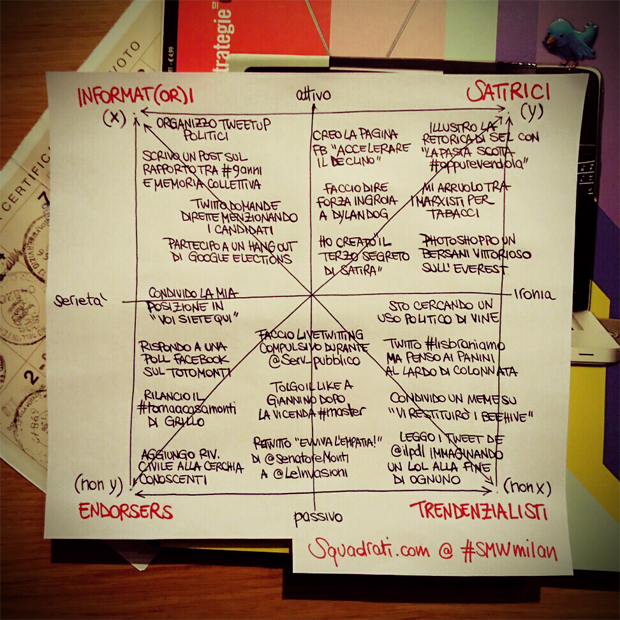 trategie
€ 4,99
VOTO
CERTIFIC
INFORMAT(OR)I
attivo
SATIRICI
(x)
(y)
ORGANIZZO TWEETUP
POLITICI
SCRIVO UN POST SUL
RAPPORTO TRA #9anni
E MEMORIA COLLETTIVA
TWITTO DOMANDE
DIRETTE MENZIONANDO
I CANDIDATI
PARTECIPO A UN HANG OUT
DI GOOGLE ELECTIONS
CREO LA PAGINA
FB "ACCELERARE
IL DECLINO"
FACCIO DIRE
FORZA INGROIA
A DYLAN DOG
HO CREATO IL
TERZO SEGRETO
DI SATIRA"
ILLUSTRO LA
RETORICA DI SEL CON
"LA PASTA SCOTTA
#oppurevendola"
MI ARRUOLO TRA
I MARXISTI PER
TABACCI
PHOTOSHOPPO UN
BERSANI VITTORIOSO
SULL'EVEREST
serietà
ironia
CONDIVIDO LA MIA
POSIZIONE IN
"VOI SIETE QUI"
RISPONDO A UNA
POLL FACEBOOK
SUL TOTOMONTI
RILANCIO IL
#tornaacasamonti
DI GRILLO
AGGIUNGO RIV.
CIVILE ALLA CERCHIA
CONOSCENTI
FACCIO LIVETWITTING
COMPULSIVO DURANTE
@Serv_pubblico
TOLGO IL LIKE A
GIANNINO DOPO
LA VICENDA #master
RETWITTO "EVVIVA L'EMPATIA!"
DI @SenatoreMonti
A @LeInvasioni
STO CERCANDO UN
USO POLITICO DI VINE
TWITTO #lisbraniamo
MA PENSO AI PANINI
AL LARDO DI COLONNATA
CONDIVIDO UN MEME SU
"VI RESTITUIRÒ I BEEHIVE"
LEGGO I TWEET DE
@ilpdl IMMAGINANDO
UN LOL ALLA FINE
DI OGNUNO
(non y)
(non x)
ENDORSERS
passivo
TRENDENZIALISTI
Squadrati.com @ #SMWmilan